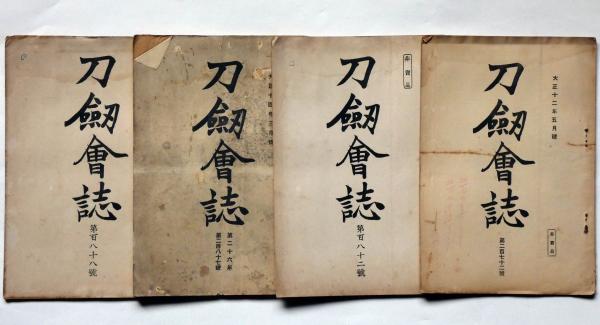 刀劔會誌
第百八十八號
刀劔會誌
第二十六年
第二百八十七號
非賣品
刀劔會誌
第百八十二號
大正十二年五月號
刀劔會誌
第二百七十二號
非賣品